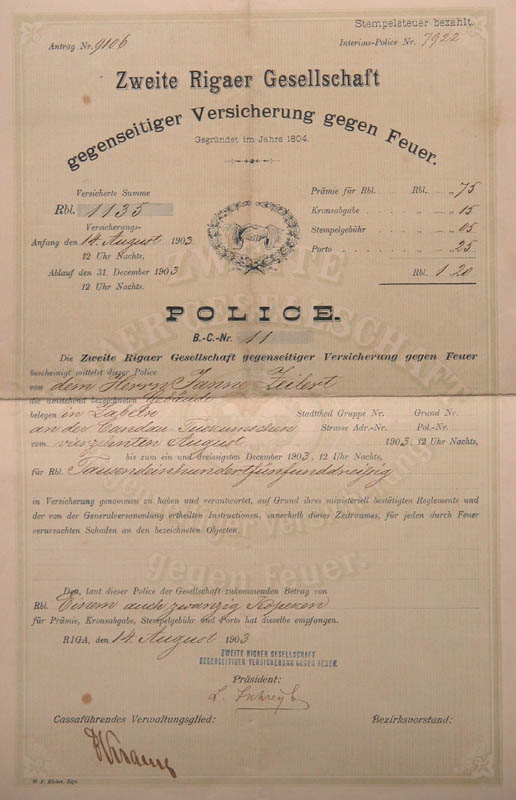 Stempelsteuer bezahlt.
Antrag Nr. 9106 Interims-Police Nr. 7922
Zweite Rigaer Gesellschaft
gegenseitiger Versicherung gegen Feuer.
Gegründet im Jahre 1804.
Versicherte Summe
Rbl. 1135
Versicherungs-
Anfang den 14. August 1903
12 Uhr Nachts,
Ablauf den 31. December 1903
12 Uhr Nachts.
Prämie für Rbl. Rbl. „ 75
Kronsabgabe „ „ 15
Stempelgebühr „ „ 05
Porto „ „ 25
Rbl. 1 20
POLICE.
B.-C.-Nr. 11
Die Zweite Rigaer Gesellschaft gegenseitiger Versicherung gegen Feuer
bescheinigt mittelst dieser Police
von dem Herrn Janne Zeilert
die umstehend bezeichneten Gebäude
belegen in Zabeln Stadttheil Gruppe Nr. Grund Nr.
an der Candau-Tuckumschen Strasse Adr.-Nr. Pol.-Nr.
vom vierzehnten August 1903, 12 Uhr Nachts,
bis zum ein und dreissigsten December 1903, 12 Uhr Nachts,
für Rbl. Tausendeinhundertfünfunddreizig
in Versicherung genommen zu haben und verantwortet, auf Grund ihres ministeriell bestätigten Reglements und
der von der Generalversammlung ertheilten Instructionen, innerhalb dieses Zeitraumes, für jeden durch Feuer
verursachten Schaden an den bezeichneten Objecten.
Den, laut dieser Police der Gesellschaft zukommenden Betrag von
Rbl. Einem auch zwanzig Kopeken
für Prämie, Kronsabgabe, Stempelgebühr und Porto hat dieselbe empfangen.
RIGA, den 14. August 1903
ZWEITE RIGAER GESELLSCHAFT
GEGENSEITIGER VERSICHERUNG GEGEN FEUER.
Präsident:
Cassaführendes Verwaltungsglied: Bezirksvorstand: